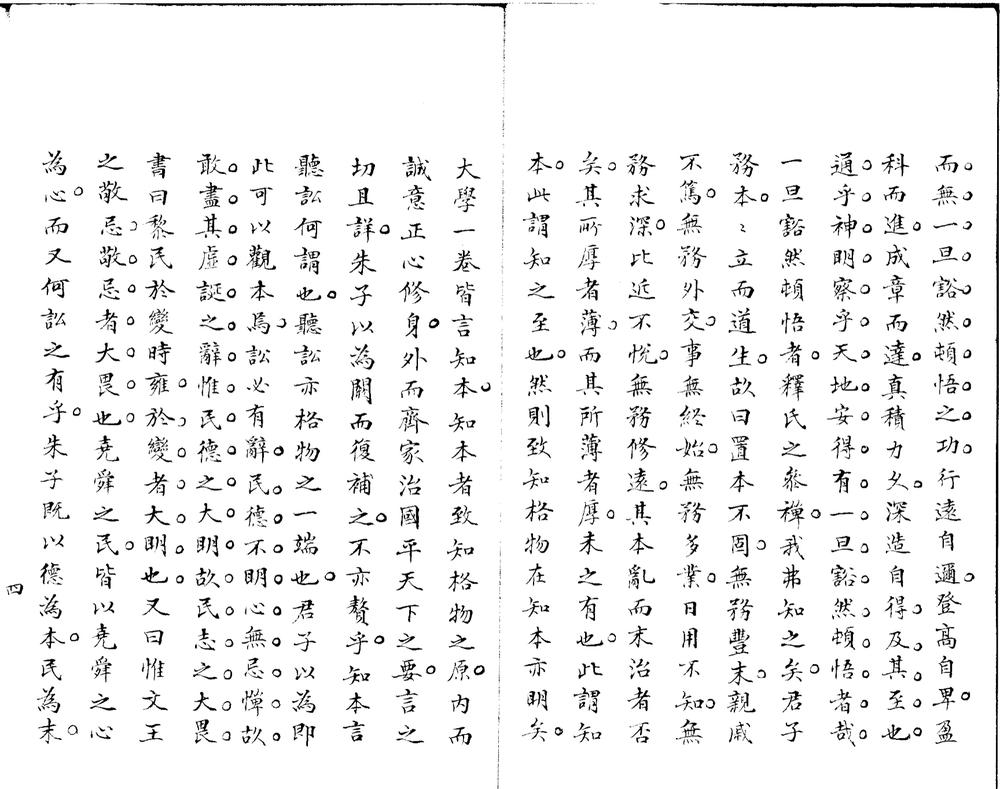 而無一旦豁然頓悟之功行遠自邇登高自卑盈
科而進成章而達真積力久深造自得及其至也
通乎神明察乎天地安得有一旦豁然頓悟者哉
一旦豁然頓悟者釋氏之叅禪我弗知之矣君子
務本〻立而道生故曰置本不固無務豐末親戚
不篤無務外交事無終始無務多業日用不知無
務求深比近不悅無務修遠其本亂而末治者否
矣其所厚者薄而其所薄者厚未之有也此謂知
本此謂知之至也然則致知格物在知本亦明矣
大學一卷皆言知本知本者致知格物之原内而
誠意正心修身外而齊家治國平天下之要言之
切且詳朱子以為闕而復補之不亦贅乎知本言
聽訟何謂也聽訟亦格物之一端也君子以為即
此可以觀本焉訟必有辭民德不明心無忌憚故
敢盡其虛誕之辭惟民德之大明故民志之大畏
書曰黎民於變時雍於變者大明也又曰惟文王
之敬忌敬忌者大畏也堯舜之民皆以堯舜之心
為心而又何訟之有乎朱子既以德為本民為末
四